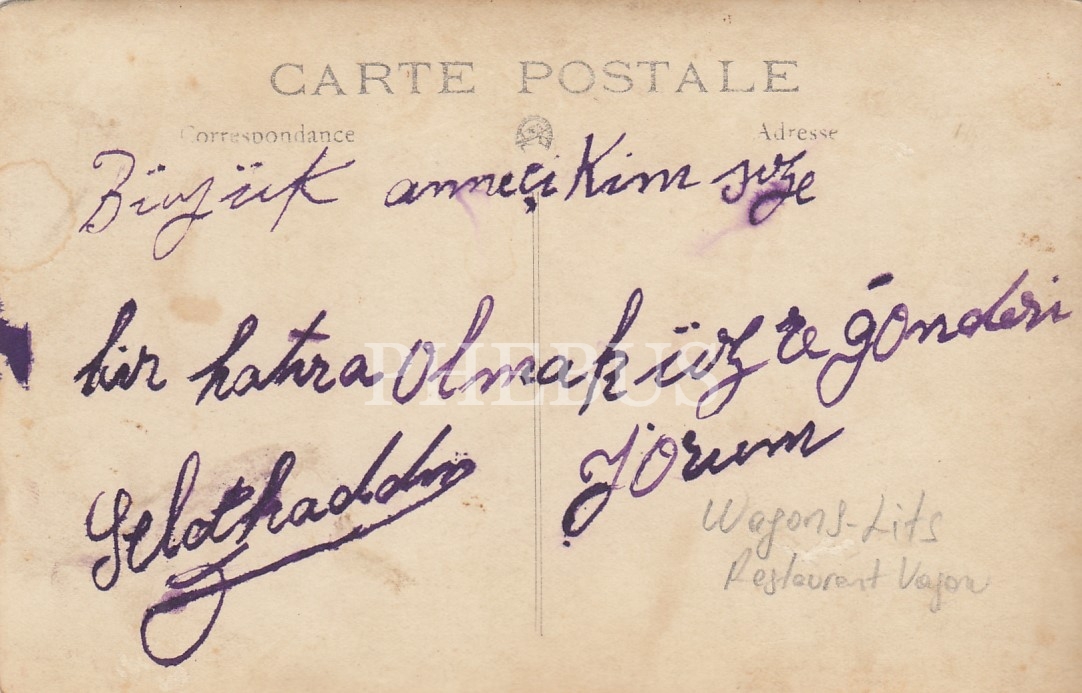 CARTE POSTALE
Correspondance Adresse
Büyük anneçiKim size
bir hatıra olmak üzre gönderi
yorum
PHEBUS
Wagons-Lits
Restaurant Vagon